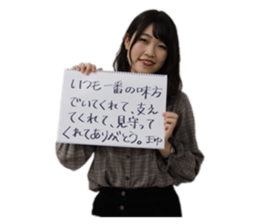 いつも一番の味方
でいてくれて、支え
てくれて、見守って
くれてありがとう。